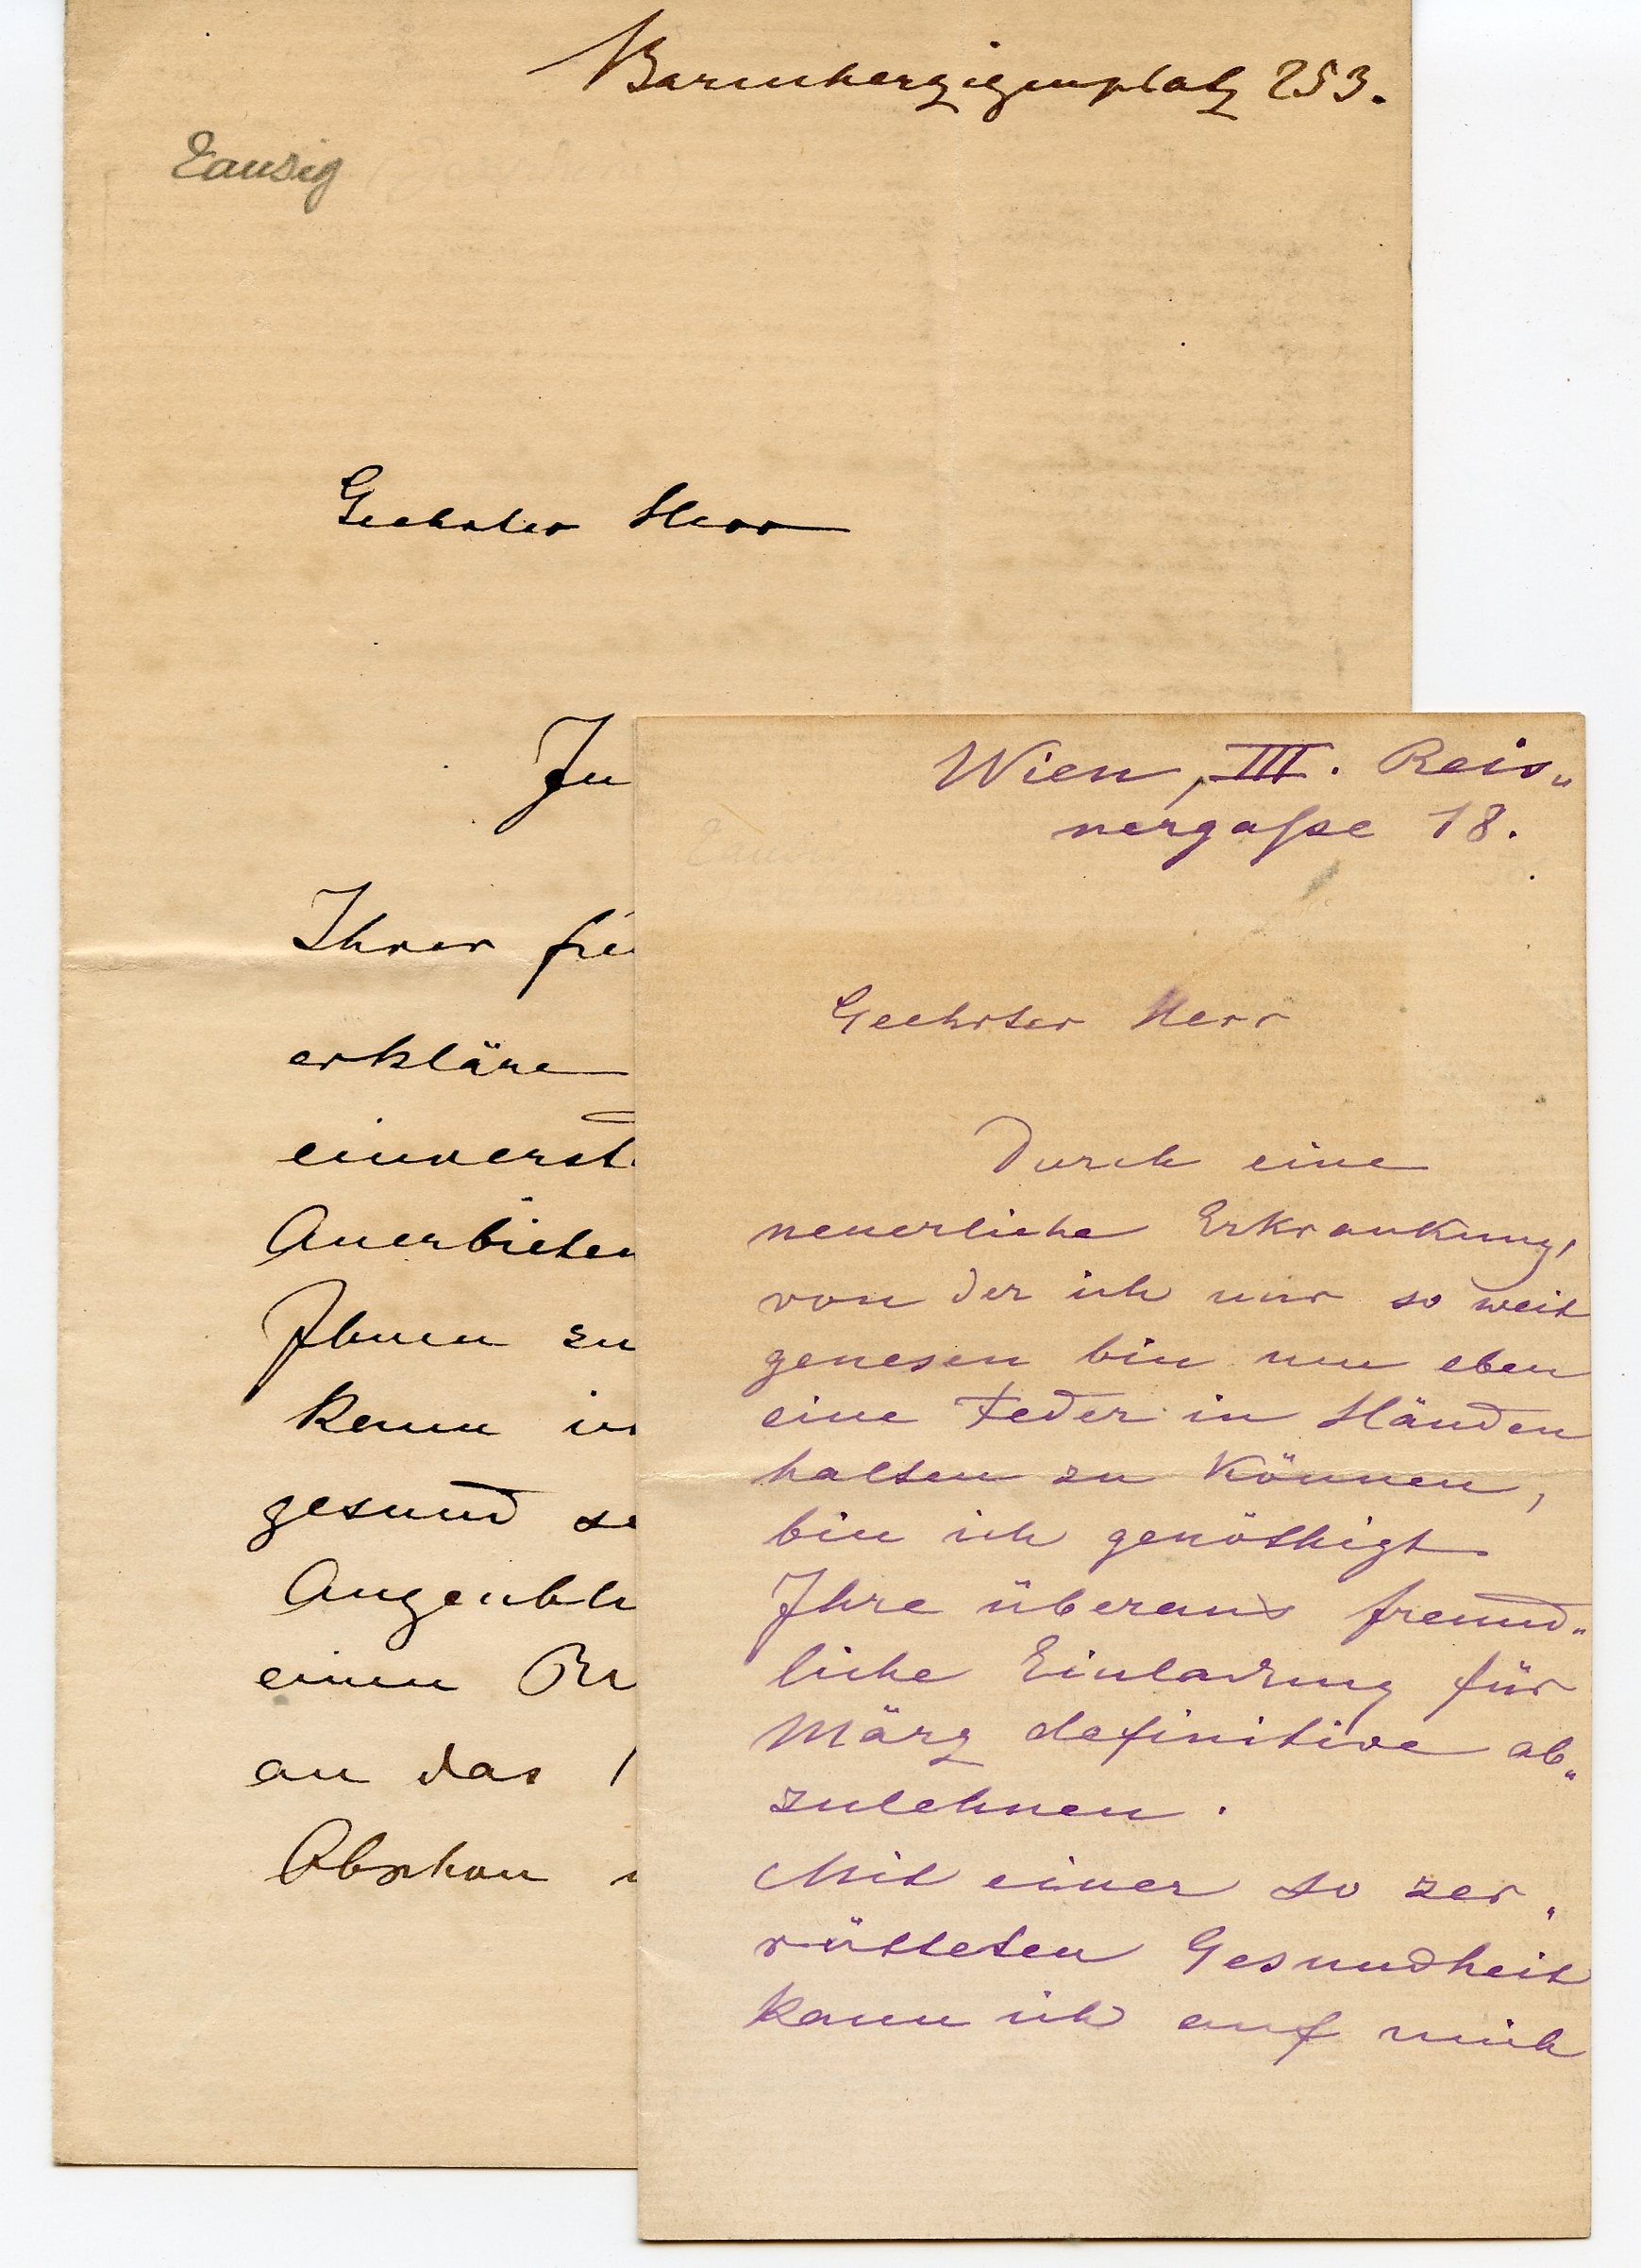 Barmherzigenplatz 253.
Tausig
Geehrter Herr
In
Ihrer
erkläre
einverst
Anerbieten
Ihnen zu
kenn
gesund se
Augenbli
einen Br
an das
Obschon
Wien, III. Reis„
nergaſse 18.
Geehrter Herr
Durch eine
neuerliche Erkrankung,
von der ich nur so weit
genesen bin um eben
eine Feder in Händen
halten zu können,
bin ich genöthigt
Ihre überaus freund„
liche Einladung für
März definitive ab„
zulehnen.
Mit einer so zer„
rütteten Gesundheit
kann ich auf mich